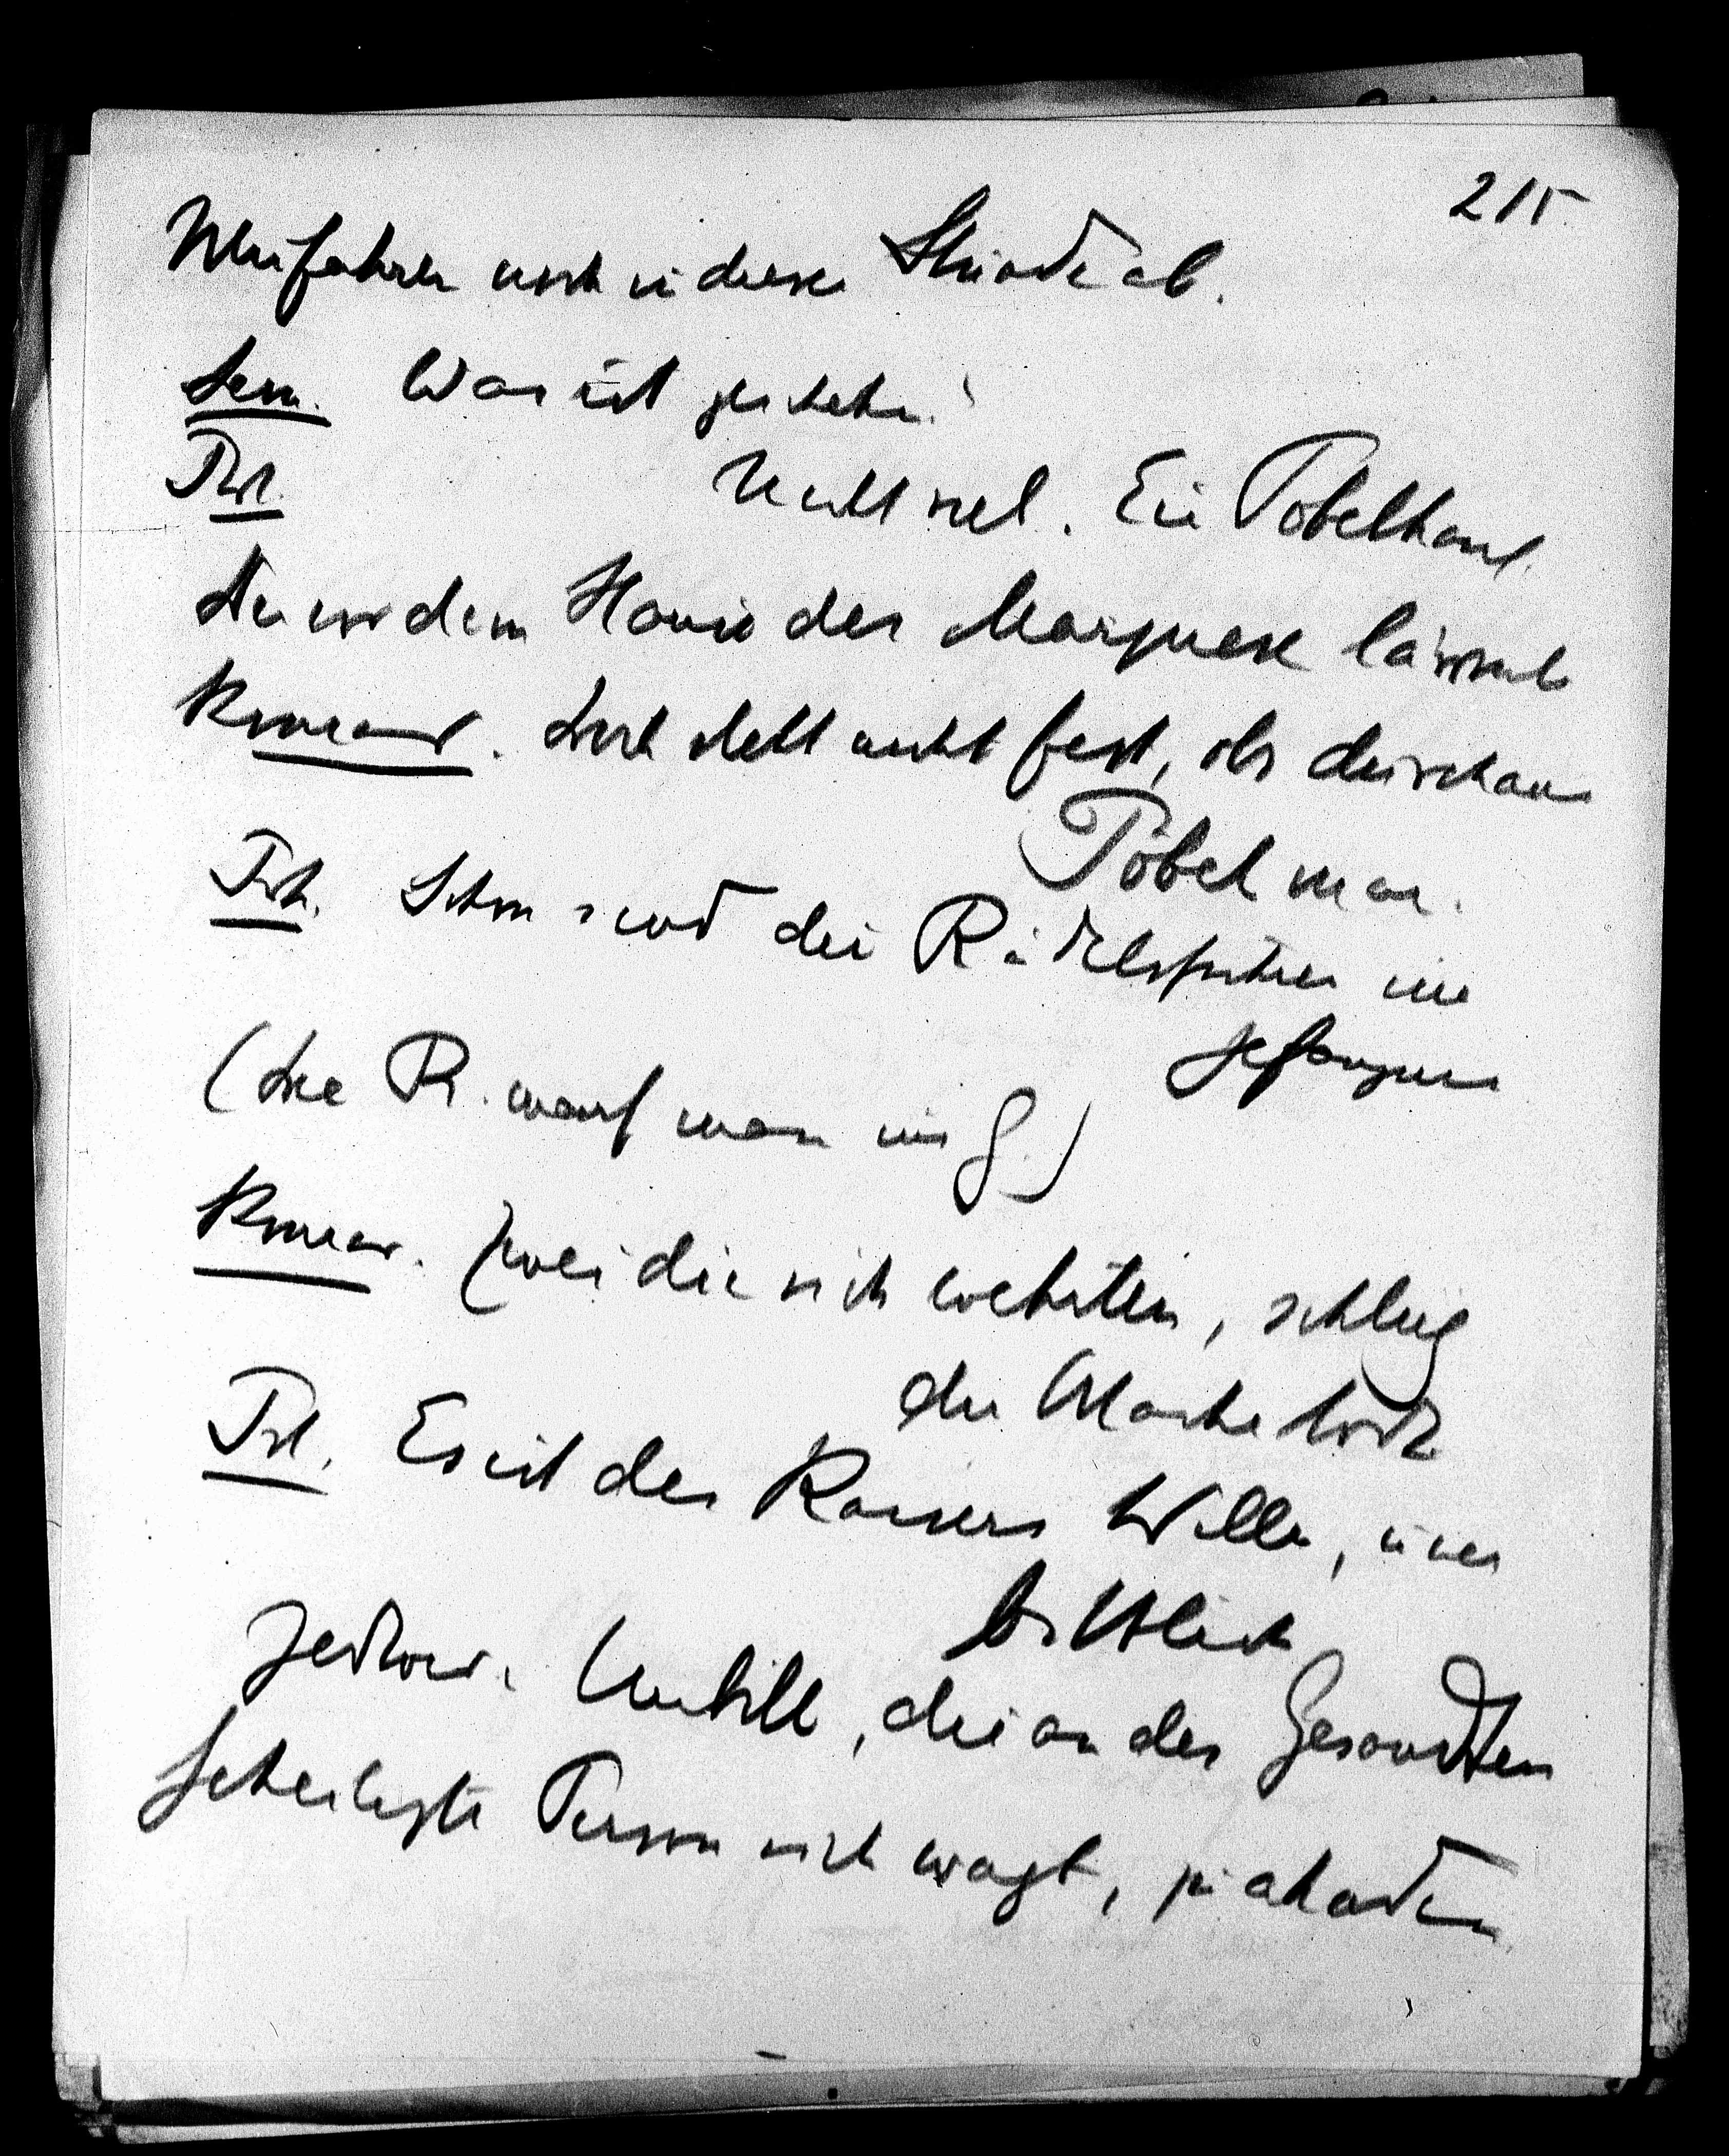 215
Wir fahren noch in dieser Stunde ab.
Sem. Was ist geschehen?
Pol. Nicht viel. Ein Pöbelhauf.
Der vor dem Hause des Marquese lärmte
Konrad. Doch steht nicht fest, ob durchaus
Pöbel war.
Pol. Schon sind die Rädelsführer im
Gefängnis
(Die R. warf man ins G.)
Konrad. Zwei die sich wehrten, schlug
die Wache tot.
Pol. Es ist des Kaisers Wille,
Unbill, die an des Gesandten
geheiligte Person sich wagt, zu ahnden